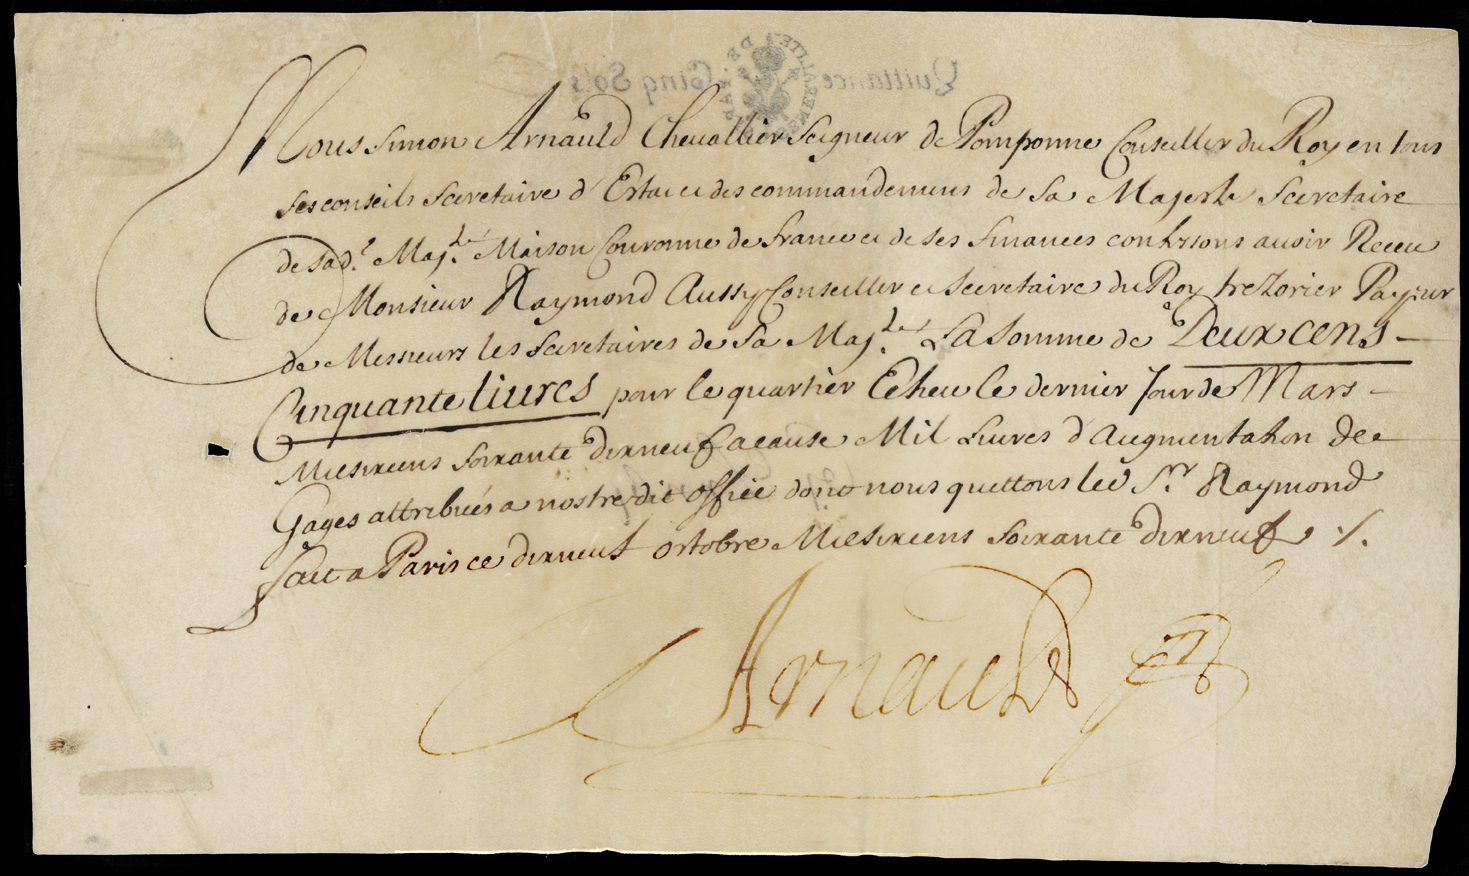 Quittance Cinq Sols
GENERALITEZ DE PAR
Nous Simon Arnauld Cheuallier Seigneur de Pomponne Conseiller du Roy en tous
ses conseils Secretaire d'Estat et des commandemens de Sa Majesté Secretaire
de sad.e Maj.té Maison Couronne de France et de ses finances confessons auoir Receu
de Monsieur Raymond Aussy Conseiller et Secretaire du Roy trezorier Payeur
de Messieurs les Secretaires de Sa Maj.té La Somme de Deux cens
Cinquante liures pour le quartier Escheu le dernier Jour de Mars
Mil six cens soixante dix neuf a cause Mil Liures d'Augmentation de
Gages attribués a nostre dit office dont nous quittons led S.r Raymond
fait a Paris ce dix neuf octobre Mil six cens soixante dix neuf ./.
Arnauld